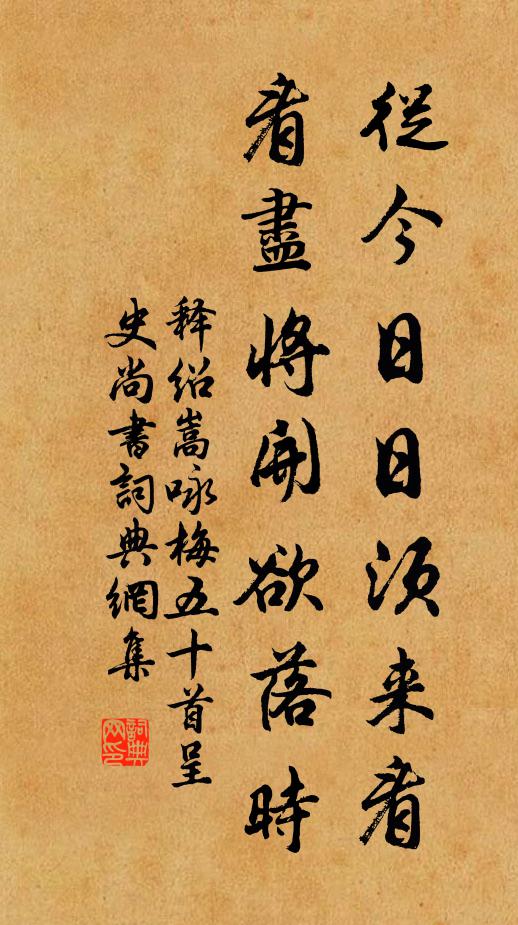 從今日日須来看
看盡將開欲落時
释绍嵩咏梅五十首呈
史尚書詞典網集
詞典网印